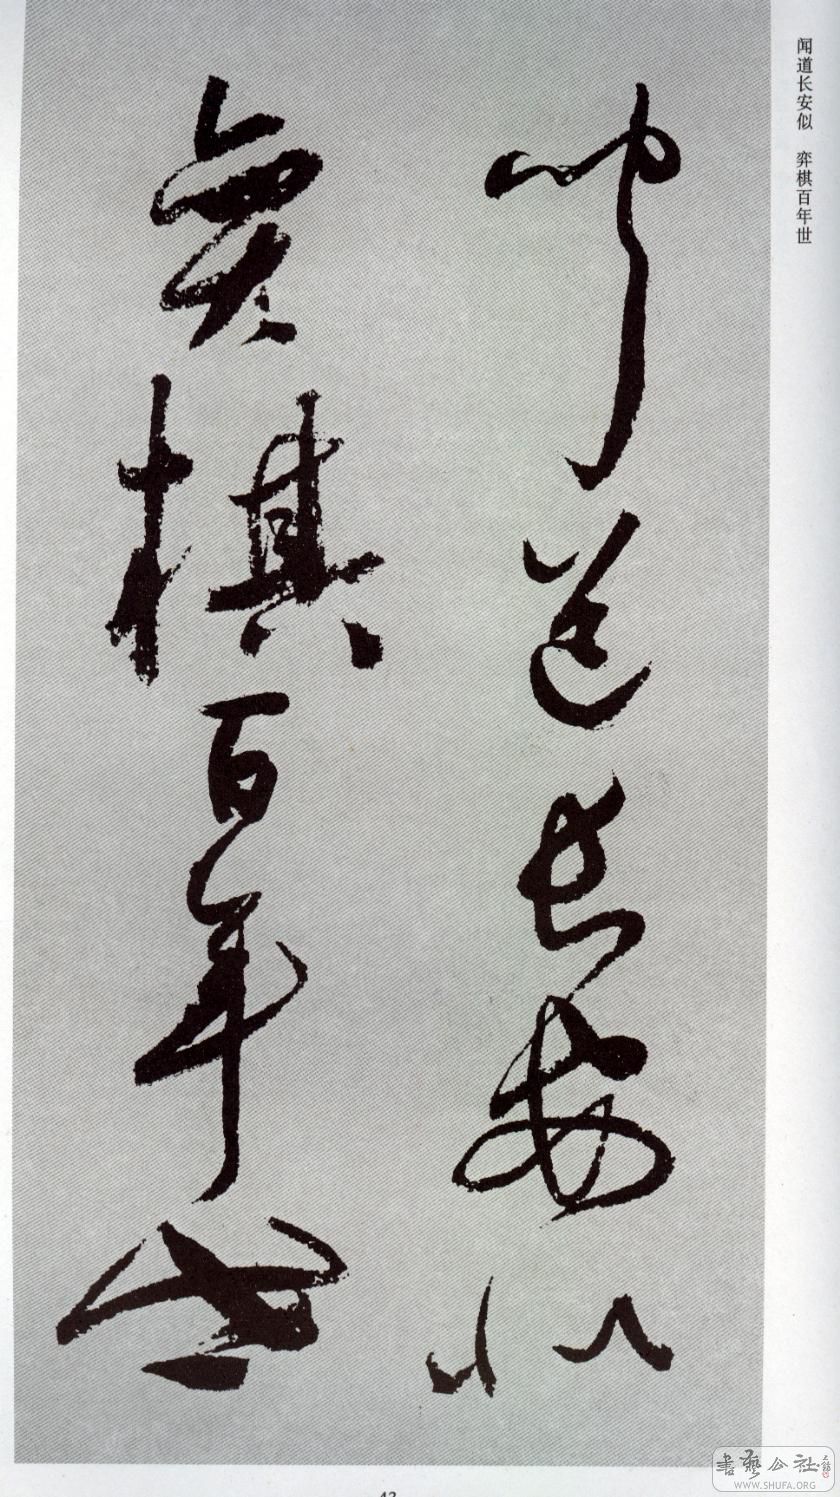 闻道长安似　弈棋百年世
闻道长安似
弈棋百年世
书艺公社
WWW.SHUFA.ORG